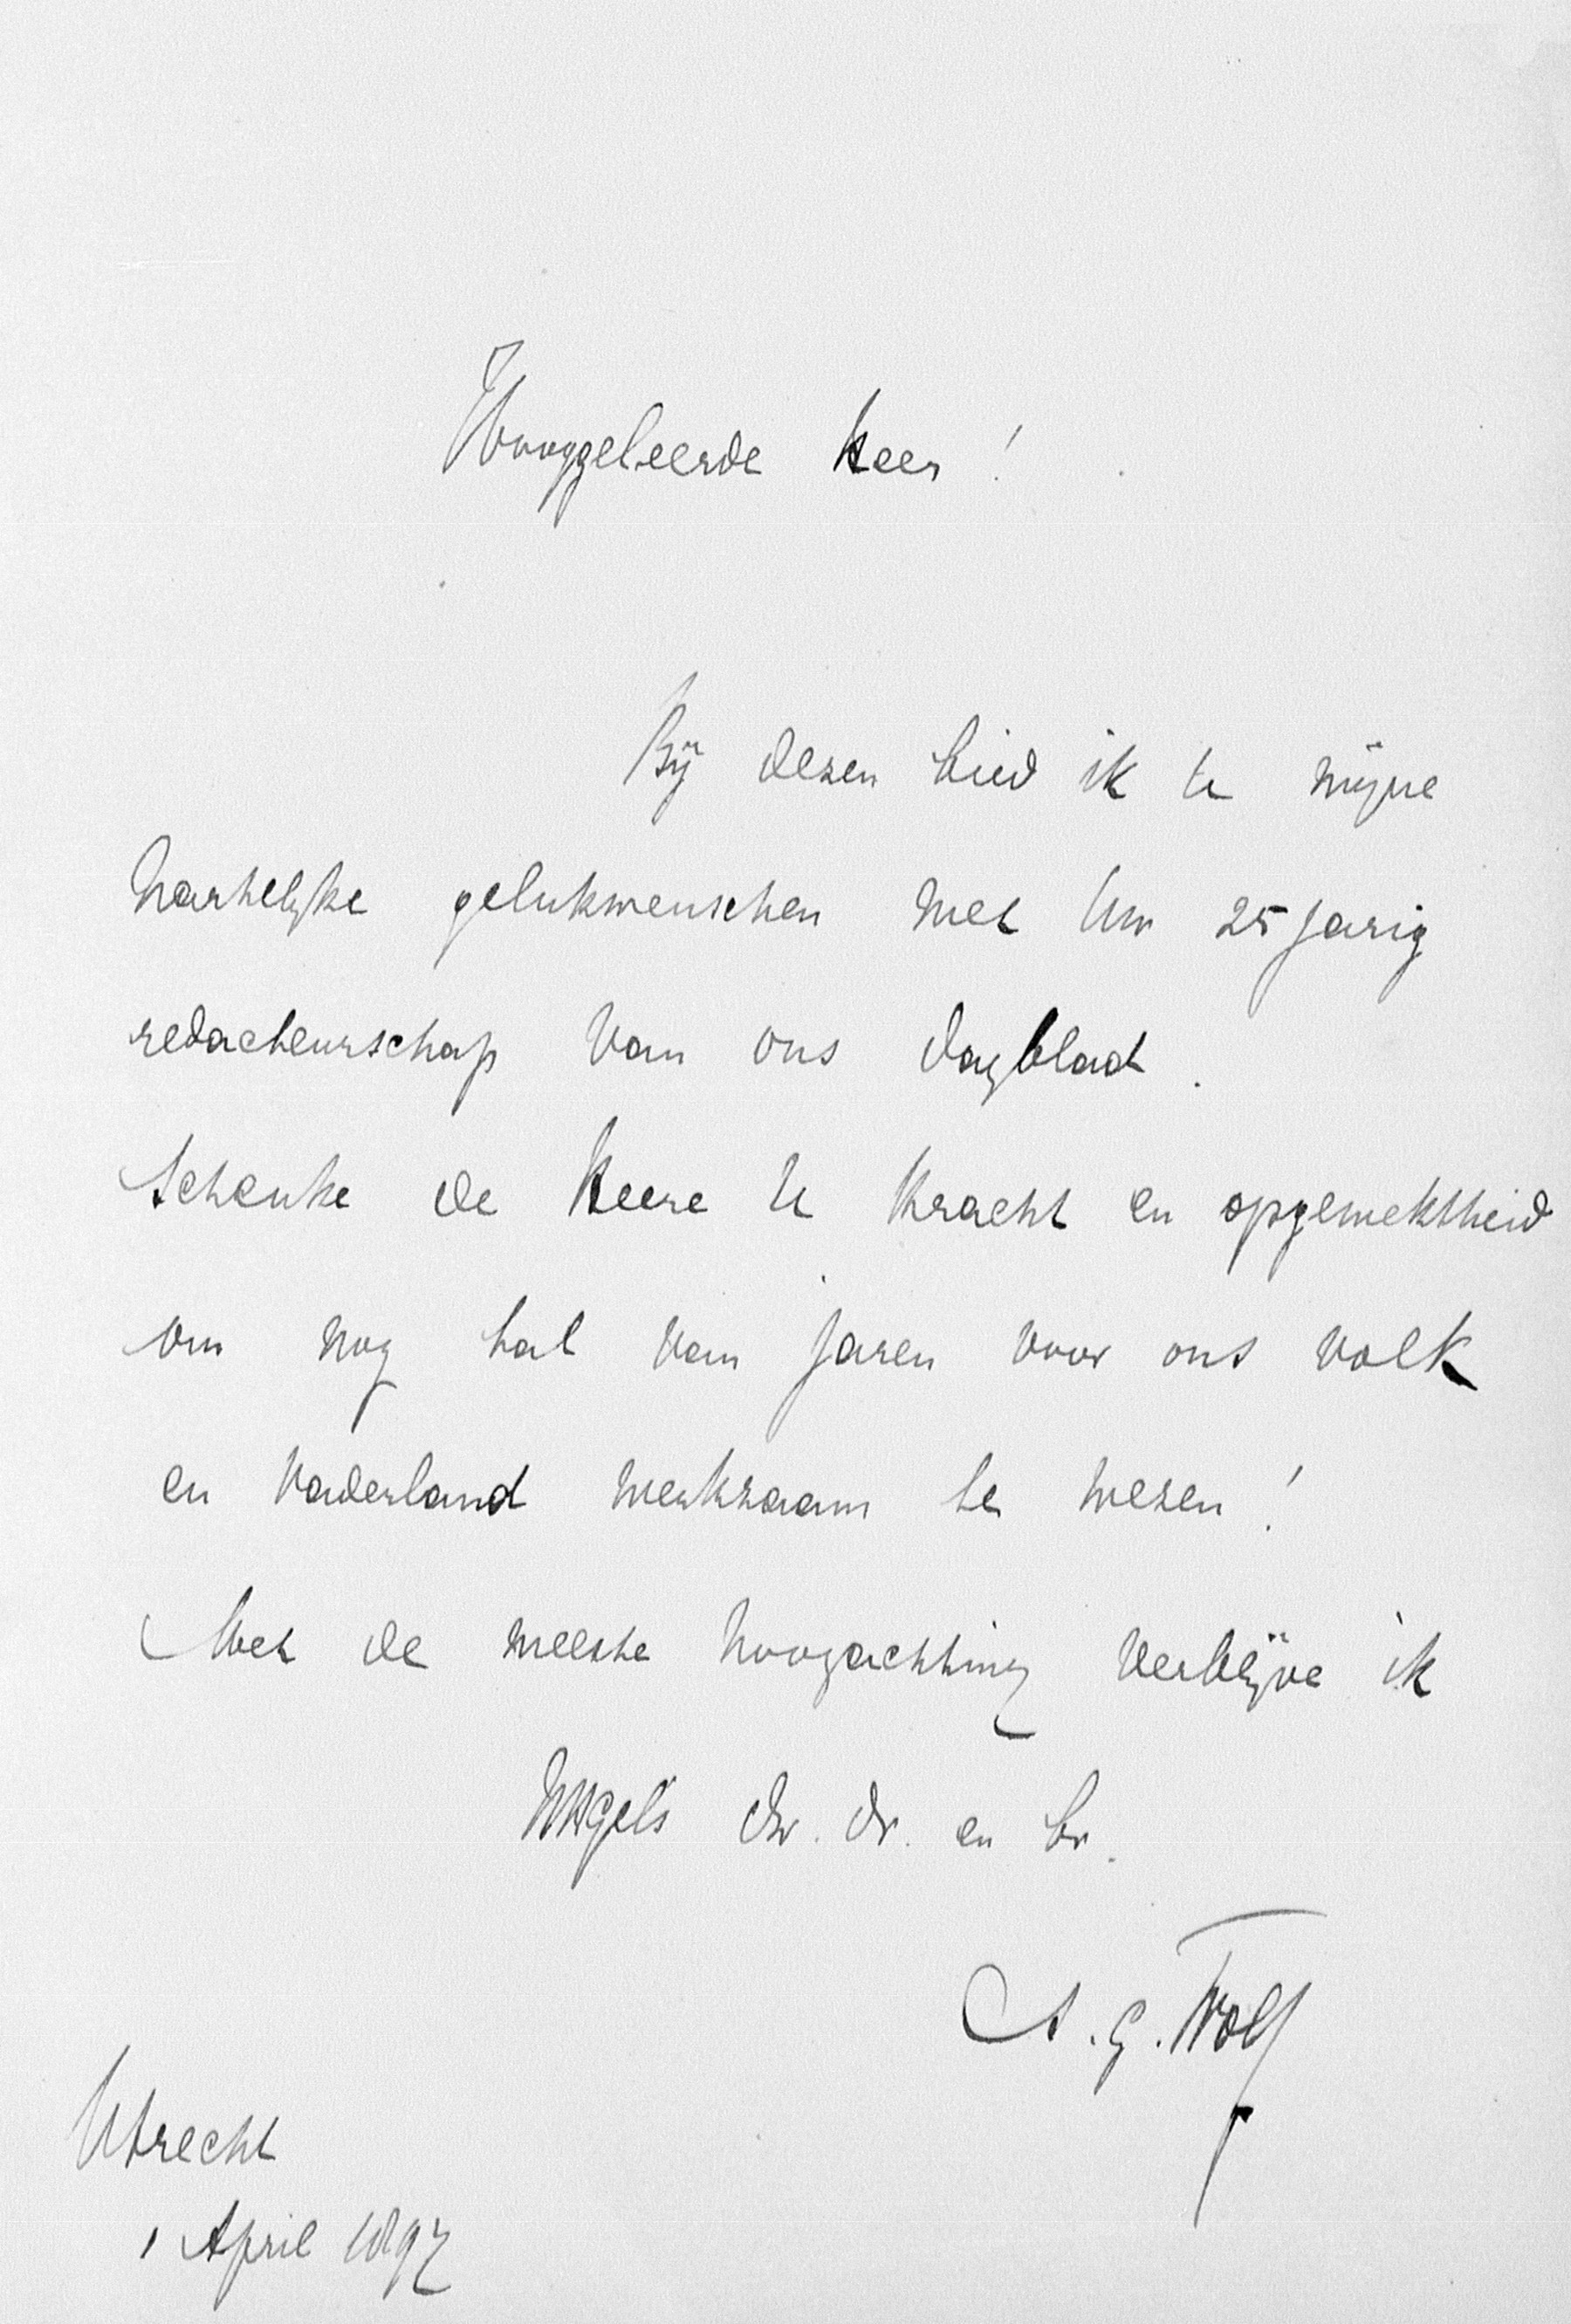 Hooggeleerde Heer!
Bij dezen bied ik U mijne
hartelijke gelukwenschen met Uw 25 jarig
redacteurschap van ons dagblad.
Schenke de Heere U kracht en opgewektheid
om nog tal van jaren voor ons volk
en vaderland werkzaam te wezen!
Met de meeste hoogachting verblijve ik
UHGel's dw. dr. en br.
A. G. Wolf
Utrecht
1 April 1897